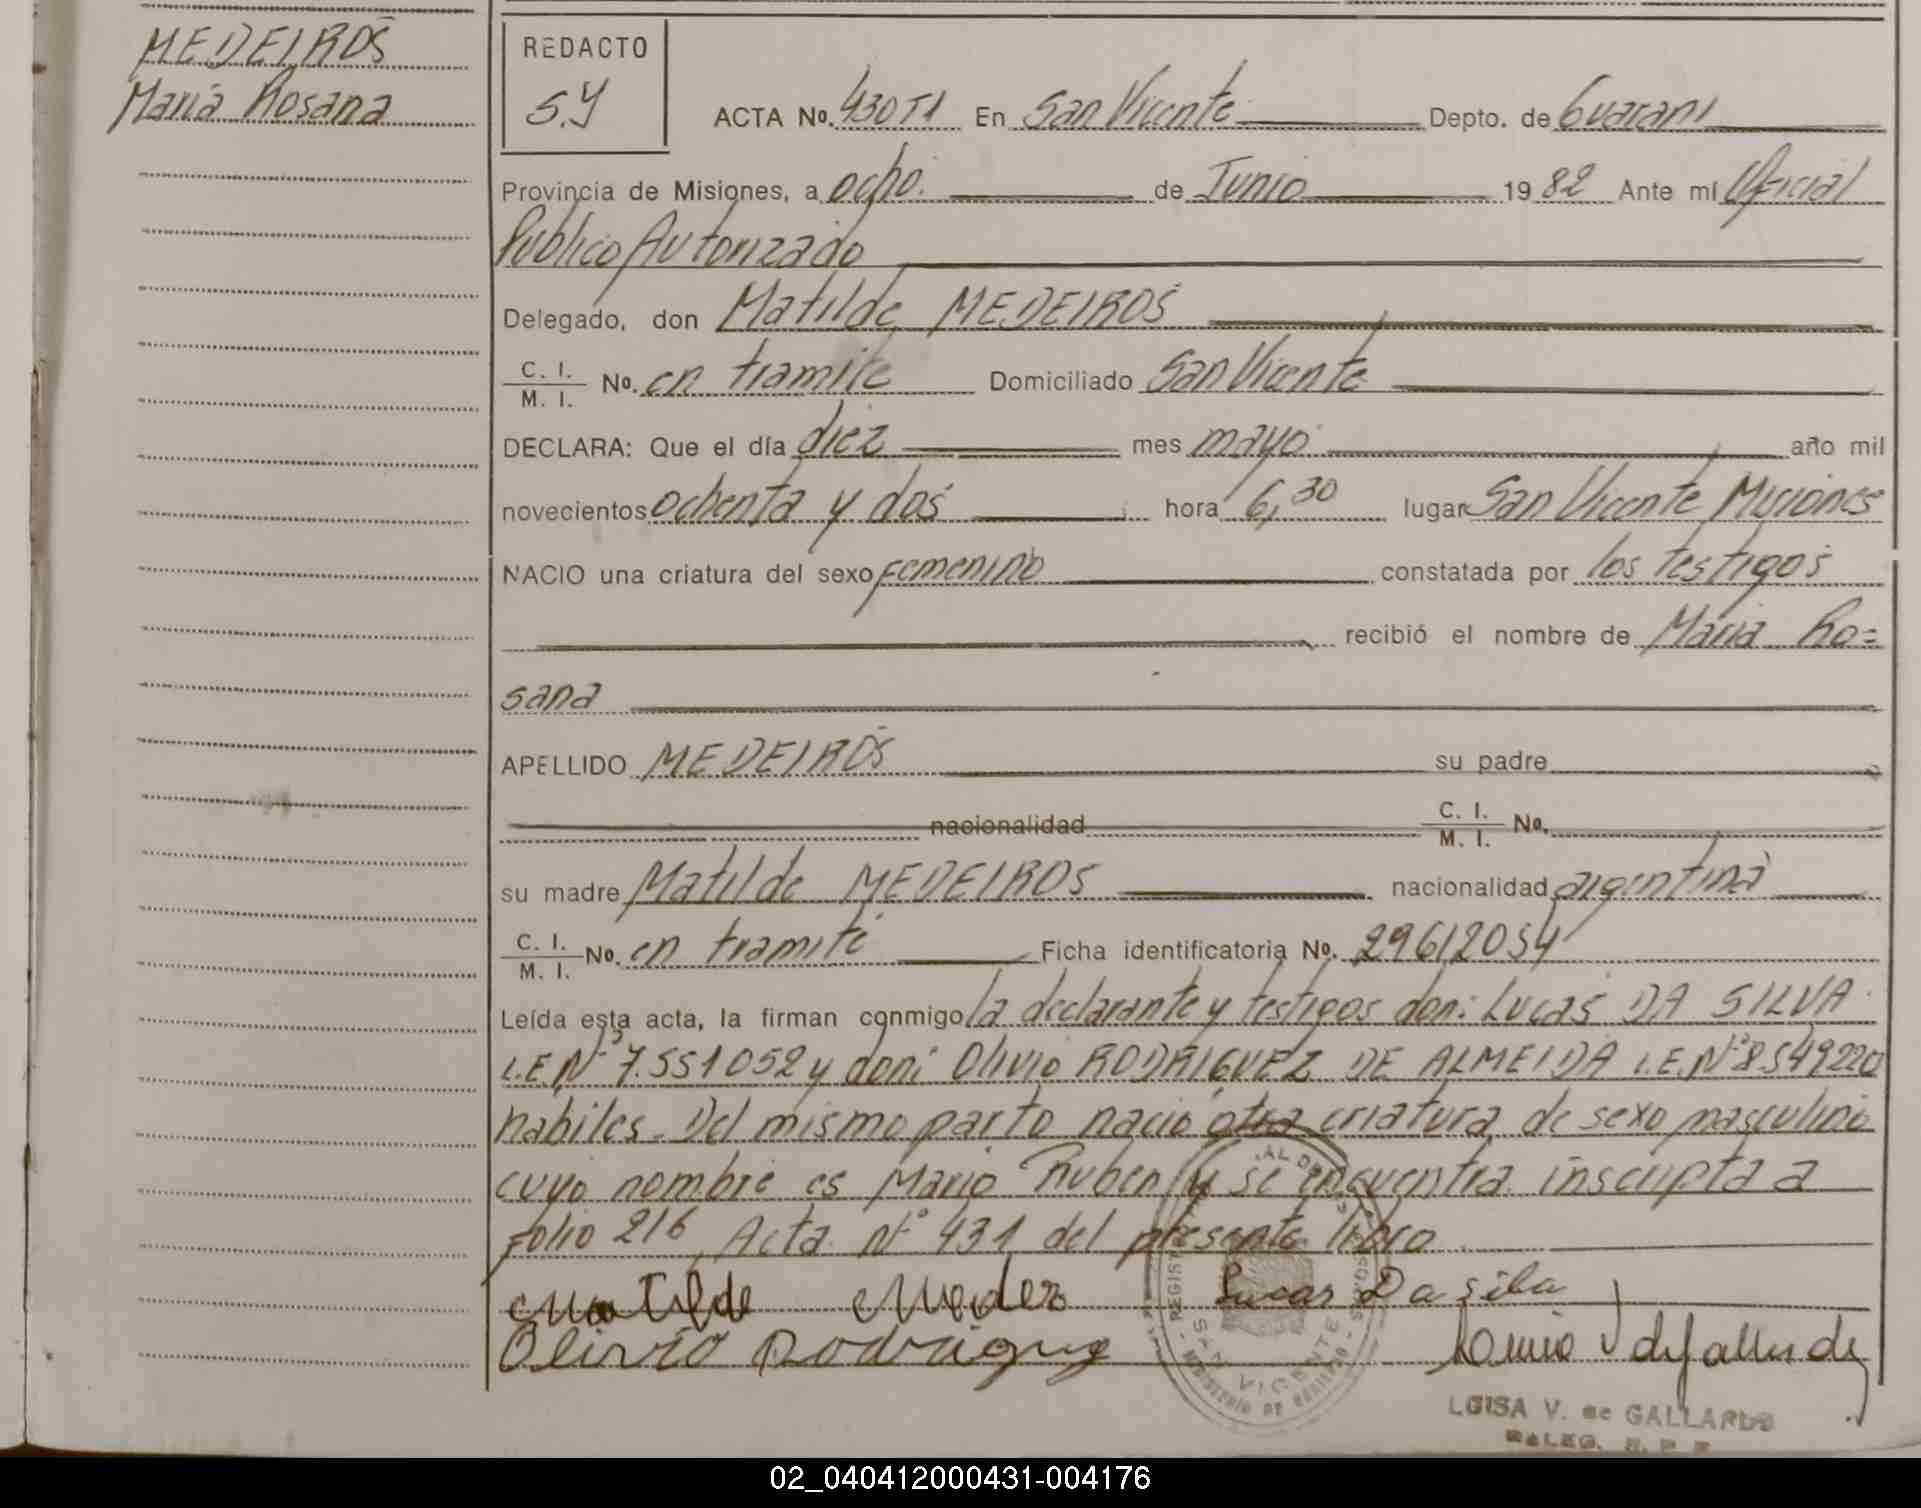 MEDEIROS
Maria Rosana
REDACTO
S.Y
ACTA No. 430T1 En San Vicente Depto. de Guarani
Provincia de Misiones, a ocho. de Junio 1982 Ante mí Oficial
Publico Autorizado
Delegado, don Matilde MEDEIROS
C. I. / M. I. No. en tramite Domiciliado San Vicente
DECLARA: Que el día diez mes mayo año mil
novecientos ochenta y dos hora 6,30 lugar San Vicente Misiones
NACIO una criatura del sexo femenino constatada por los testigos
recibió el nombre de Maria Ro=
sana
APELLIDO MEDEIROS su padre
nacionalidad C. I. / M. I. No.
su madre Matilde MEDEIROS nacionalidad argentina
C. I. / M. I. No. en tramite Ficha identificatoria No. 29612034
Leída esta acta, la firman conmigo la declarante y testigos don: Lucas DA SILVA
L.E.Nº 7.551052 y don: Olivio RODRIGUEZ DE ALMEIDA L.E.Nº 8549220
habiles. Del mismo parto nacio otra criatura de sexo masculino
cuyo nombre es Mario Ruben y se encuentra inscripta a
folio 216 Acta nº 431 del presente libro
Matilde Lucas Da silba
Olivio
REGIST SAN VICENTE
LUISA V. de GALLARDO
DELEG.
02_040412000431-004176